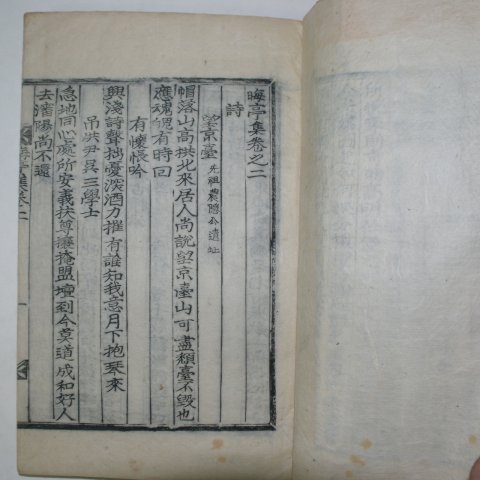 晦亭集卷之二
詩
望京臺 先祖農隱公遺址
帽落山高拱北來居人尚說望京臺山可盡頹臺不毀也
應魂魄有時回
有懷悵吟
興淺詩聲拙憂深酒力摧有誰知我意月下抱琴來
吊洪尹吳三學士
急地同心處所安義扶尊攘掩盟壇到今莫道成和好人
去瀋陽尚不還